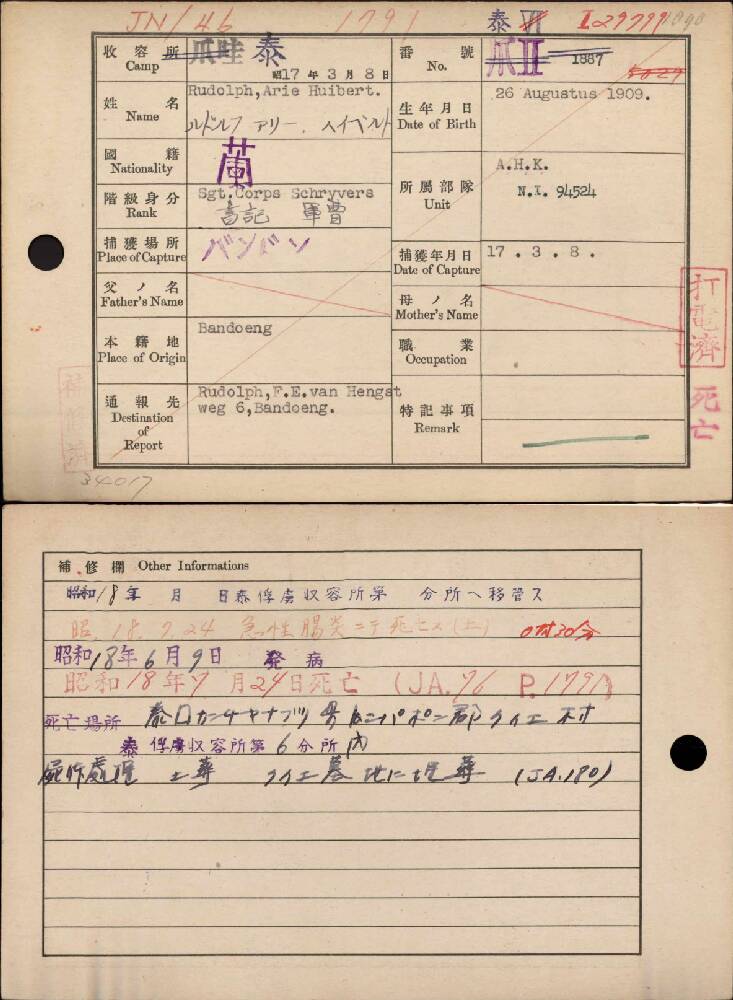 JN/46 1791 泰 VI I 29799 1090
收容所 Camp 爪哇 泰
昭17年3月8日
番號 No. 爪II 1887
姓名 Name Rudolph,Arie Huibert.
ルドルフ アリー. ヘイベルト
生年月日 Date of Birth 26 Augustus 1909.
國籍 Nationality 蘭
階級身分 Rank Sgt.Corps Schryvers
書記 軍曹
所属部隊 Unit A.H.K.
N.I. 94524
捕獲場所 Place of Capture バンドン
捕獲年月日 Date of Capture 17 . 3 . 8 .
父ノ名 Father's Name
母ノ名 Mother's Name
本籍地 Place of Origin Bandoeng
職業 Occupation
通報先 Destination of Report Rudolph,F.E.van Hengst
weg 6,Bandoeng.
特記事項 Remark
打電濟
死亡
34017
補修欄 Other Informations
昭和18年 月 日泰俘虜収容所第 分所へ移管ス
昭.18.7.24 急性腸炎ニテ死亡ス(土) 0時30分
昭和18年6月9日 発病
昭和18年7月24日死亡 (JA.76 P.1791)
死亡場所 泰口カンチャナブリ県 郡クイエ村
泰俘虜収容所第6分所内
屍体處理 土葬 クイエ墓地に埋葬 (JA.180)